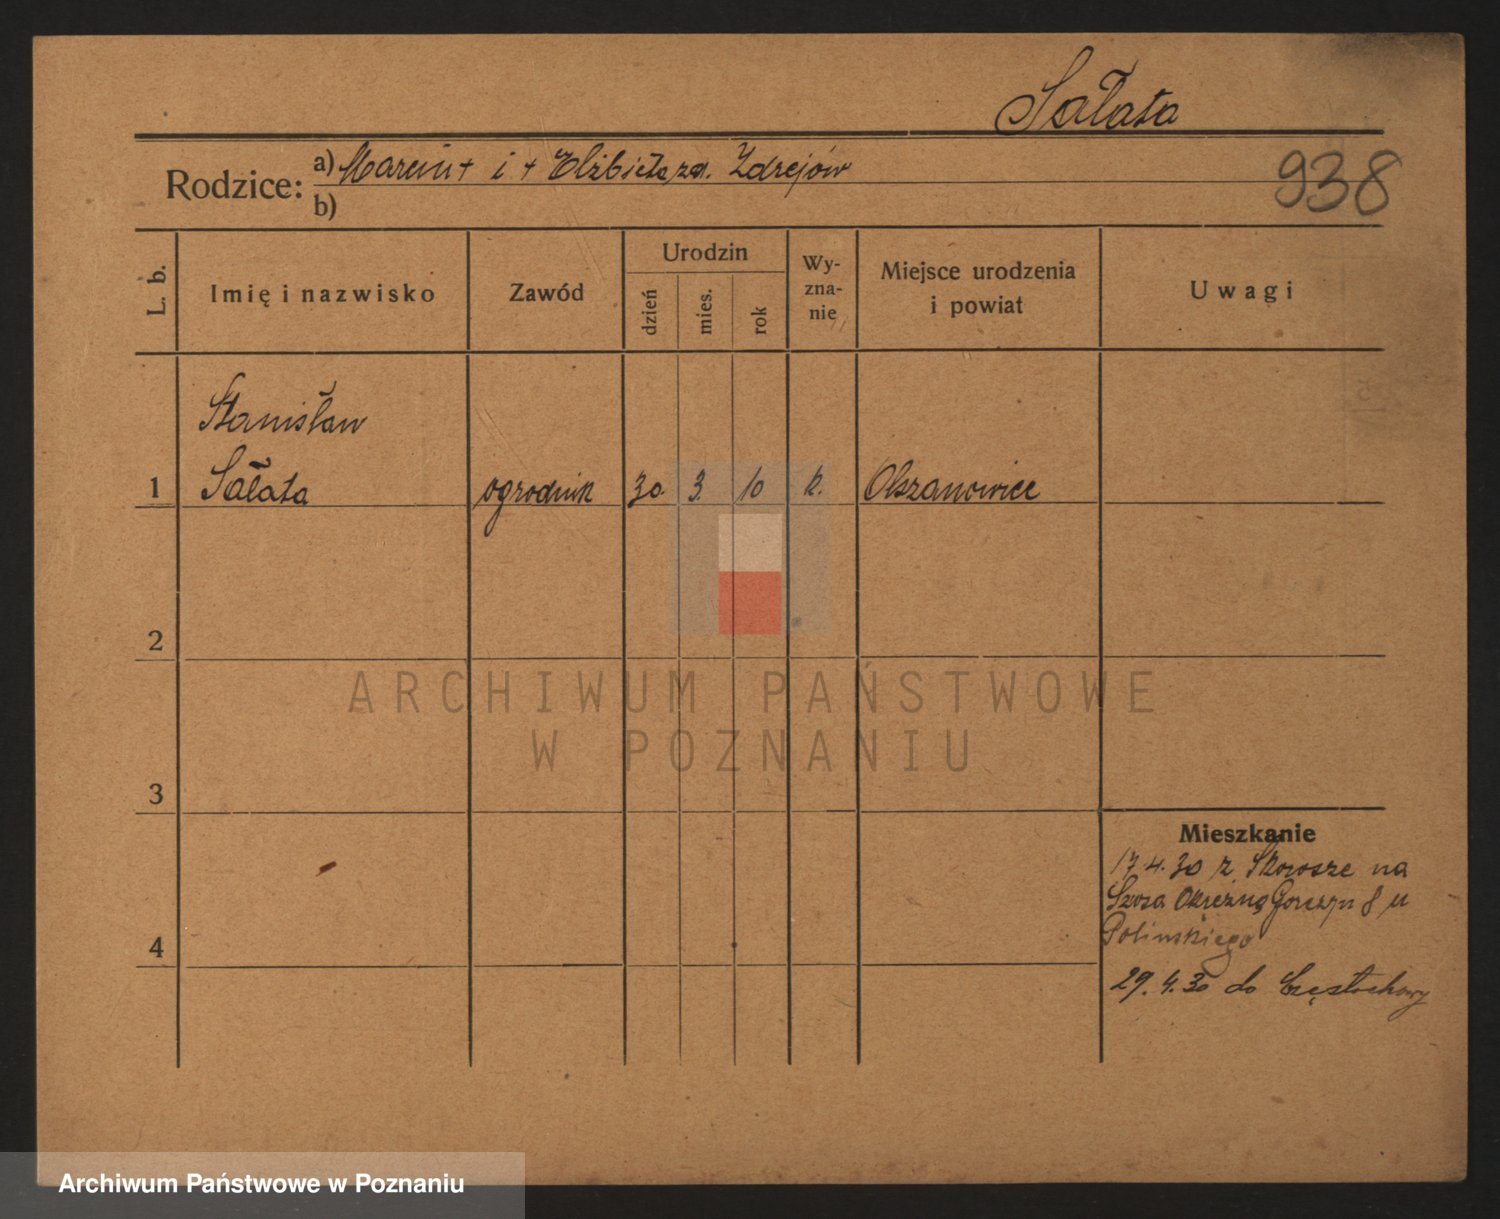 Sałata
Rodzice: a) Marcin + i + Elżbieta zd. Zdrejów
938
b)
L. b. Imię i nazwisko Zawód Urodzin dzień mies. rok Wy-zna-nie Miejsce urodzenia i powiat Uwagi
Stanisław
1 Sałata ogrodnik 30. 3. 10 k. Olszanowice
2
ARCHIWUM PAŃSTWOWE
W POZNANIU
3
Mieszkanie
17.4.30 z na
Szosa Okrężna Gorczyn 8 u
4
29.4.30 do Częstochowy
Archiwum Państwowe w Poznaniu